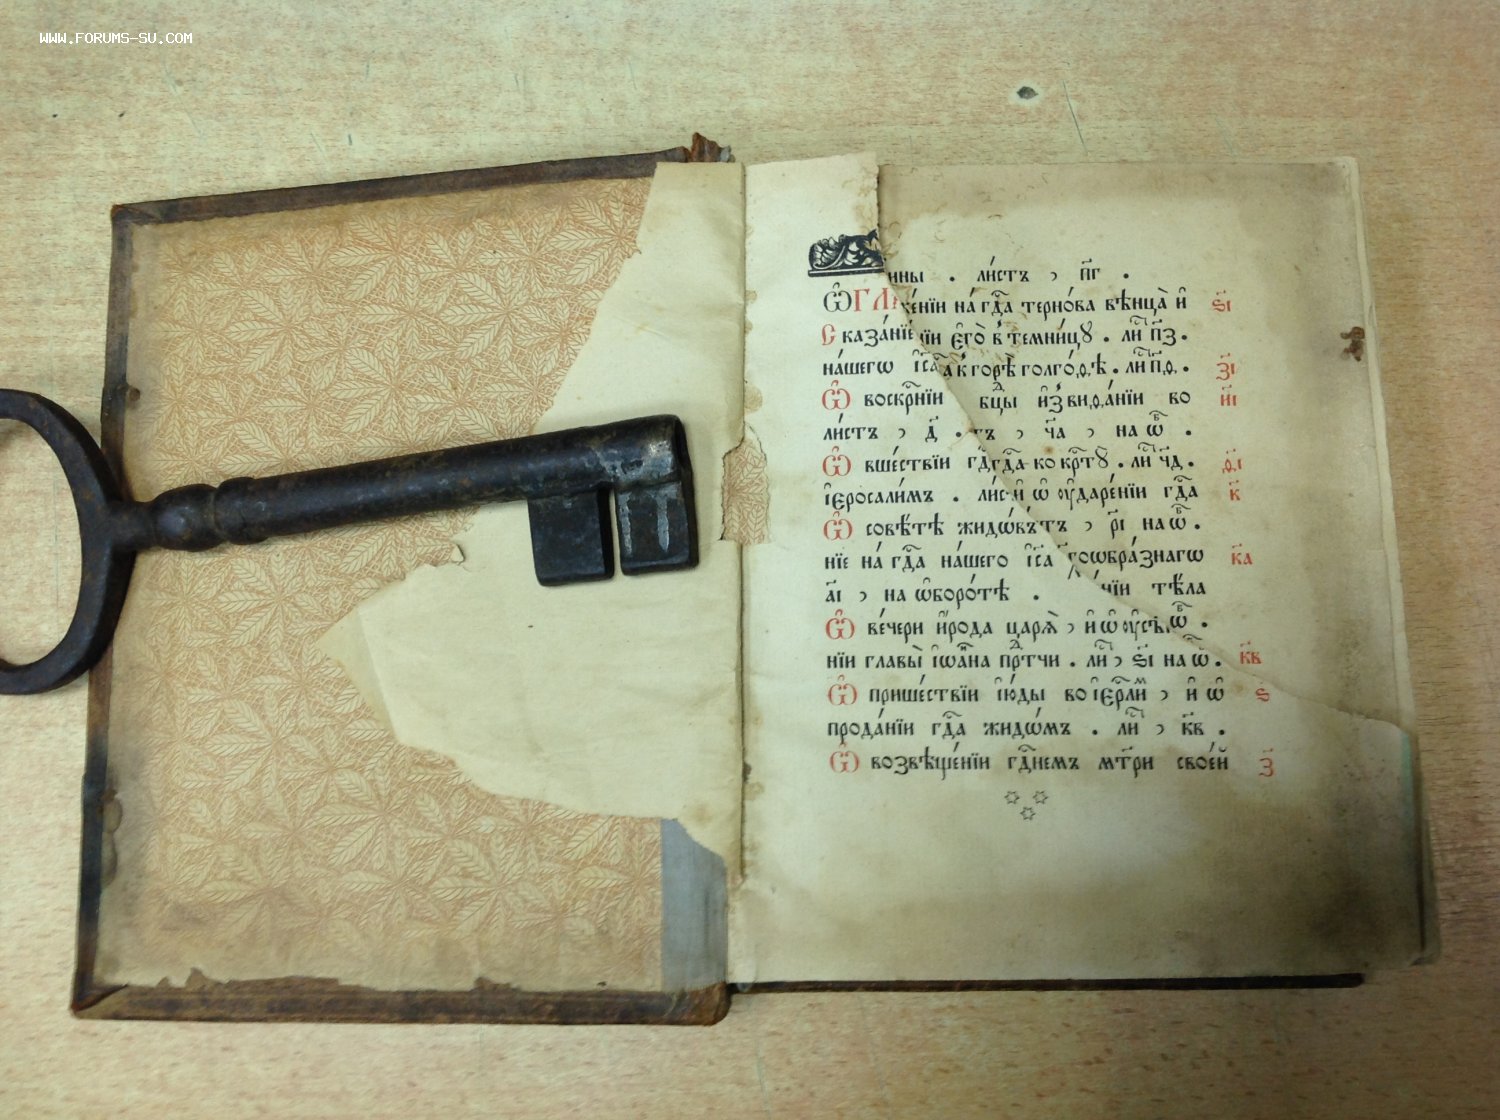 WWW.FORUMS-SU.COM
ины . ли́стъ , п҃г .
Ѡ҆ГЛ
же́нїи на́ гд҃а терно́ва вѣнца̀ и҆ ѕ҃і
Сказа́нїе
нїи є҆го̀ в̾ темни́цꙋ . ли҃ п҃з .
на́шегѡ і҆са к̾ горѣ̀ голго́ѳѣ . ли҃ п҃ѳ . з҃і
Ѡ҆ воскр҃нїи бц҃ы и҆з̾ вида́нїи во и҃і
ли́стъ , д҃ . тъ , ч҃а , на ѡ҆б .
Ѡ҆ вше́ствїи гд҃ гд҃а ко кр҃тꙋ . ли҃ ч҃д . ѳ҃і
і҆еросали́мъ . лис и҆ ѡ҆ ᲂу҆даре́нїи гд҃а к҃
Ѡ҆ совѣ́тѣ жидѡ́в тъ , р҃і на ѡ҆б .
нїе на́ гд҃а на́шего і҆са гоѡбра́знагѡ к҃а
а҃і , на ѡ҆боро́тѣ . чїи тѣ́ла
Ѡ҆ ве́чери и҆́рода царѧ̀ , и҆ ѡ҆ ᲂу҆сѣ ѡ҆б .
нїи главы̀ і҆ѡа҆́нна пр҃тчи . ли҃ , ѕ҃і на ѡ҆б . к҃в
Ѡ҆ прише́ствїи і҆ю́ды во і҆ер҃ли́м , и҆ ѡ҆ ѕ҃
прода́нїи гд҃а жидѡ́мъ . ли҃ , к҃в .
Ѡ҆ возвѣще́нїи гд҃немъ мт҃ри свое́й з҃